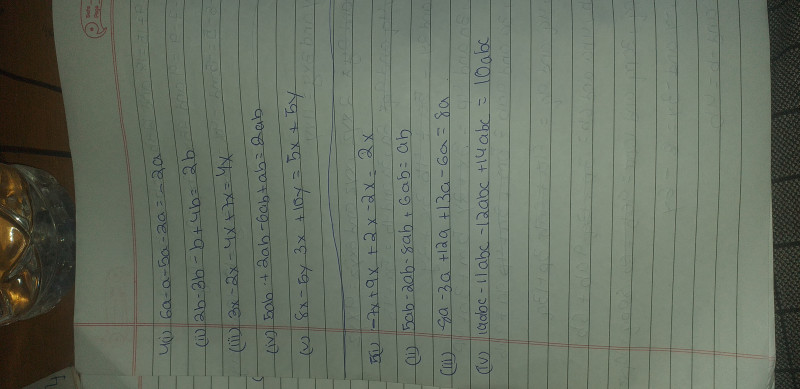 4(i) 6a-a-5a-2a=-2a
(ii) 2b-3b-b+4b= 2b
(iii) 3x-2x-4x+7x=4x
(iv) 5ab+2ab-6ab+ab=2ab
(v) 8x-5y 3x+10y= 5x+5y
5(i) -7x+9x+2x-2x= 2x
(ii) 5ab-2ab-8ab+6ab=ab
(iii) 8a-3a+12a+13a-6a=8a.
(iv) 19abc-11abc-12abc+14abc = 10abc